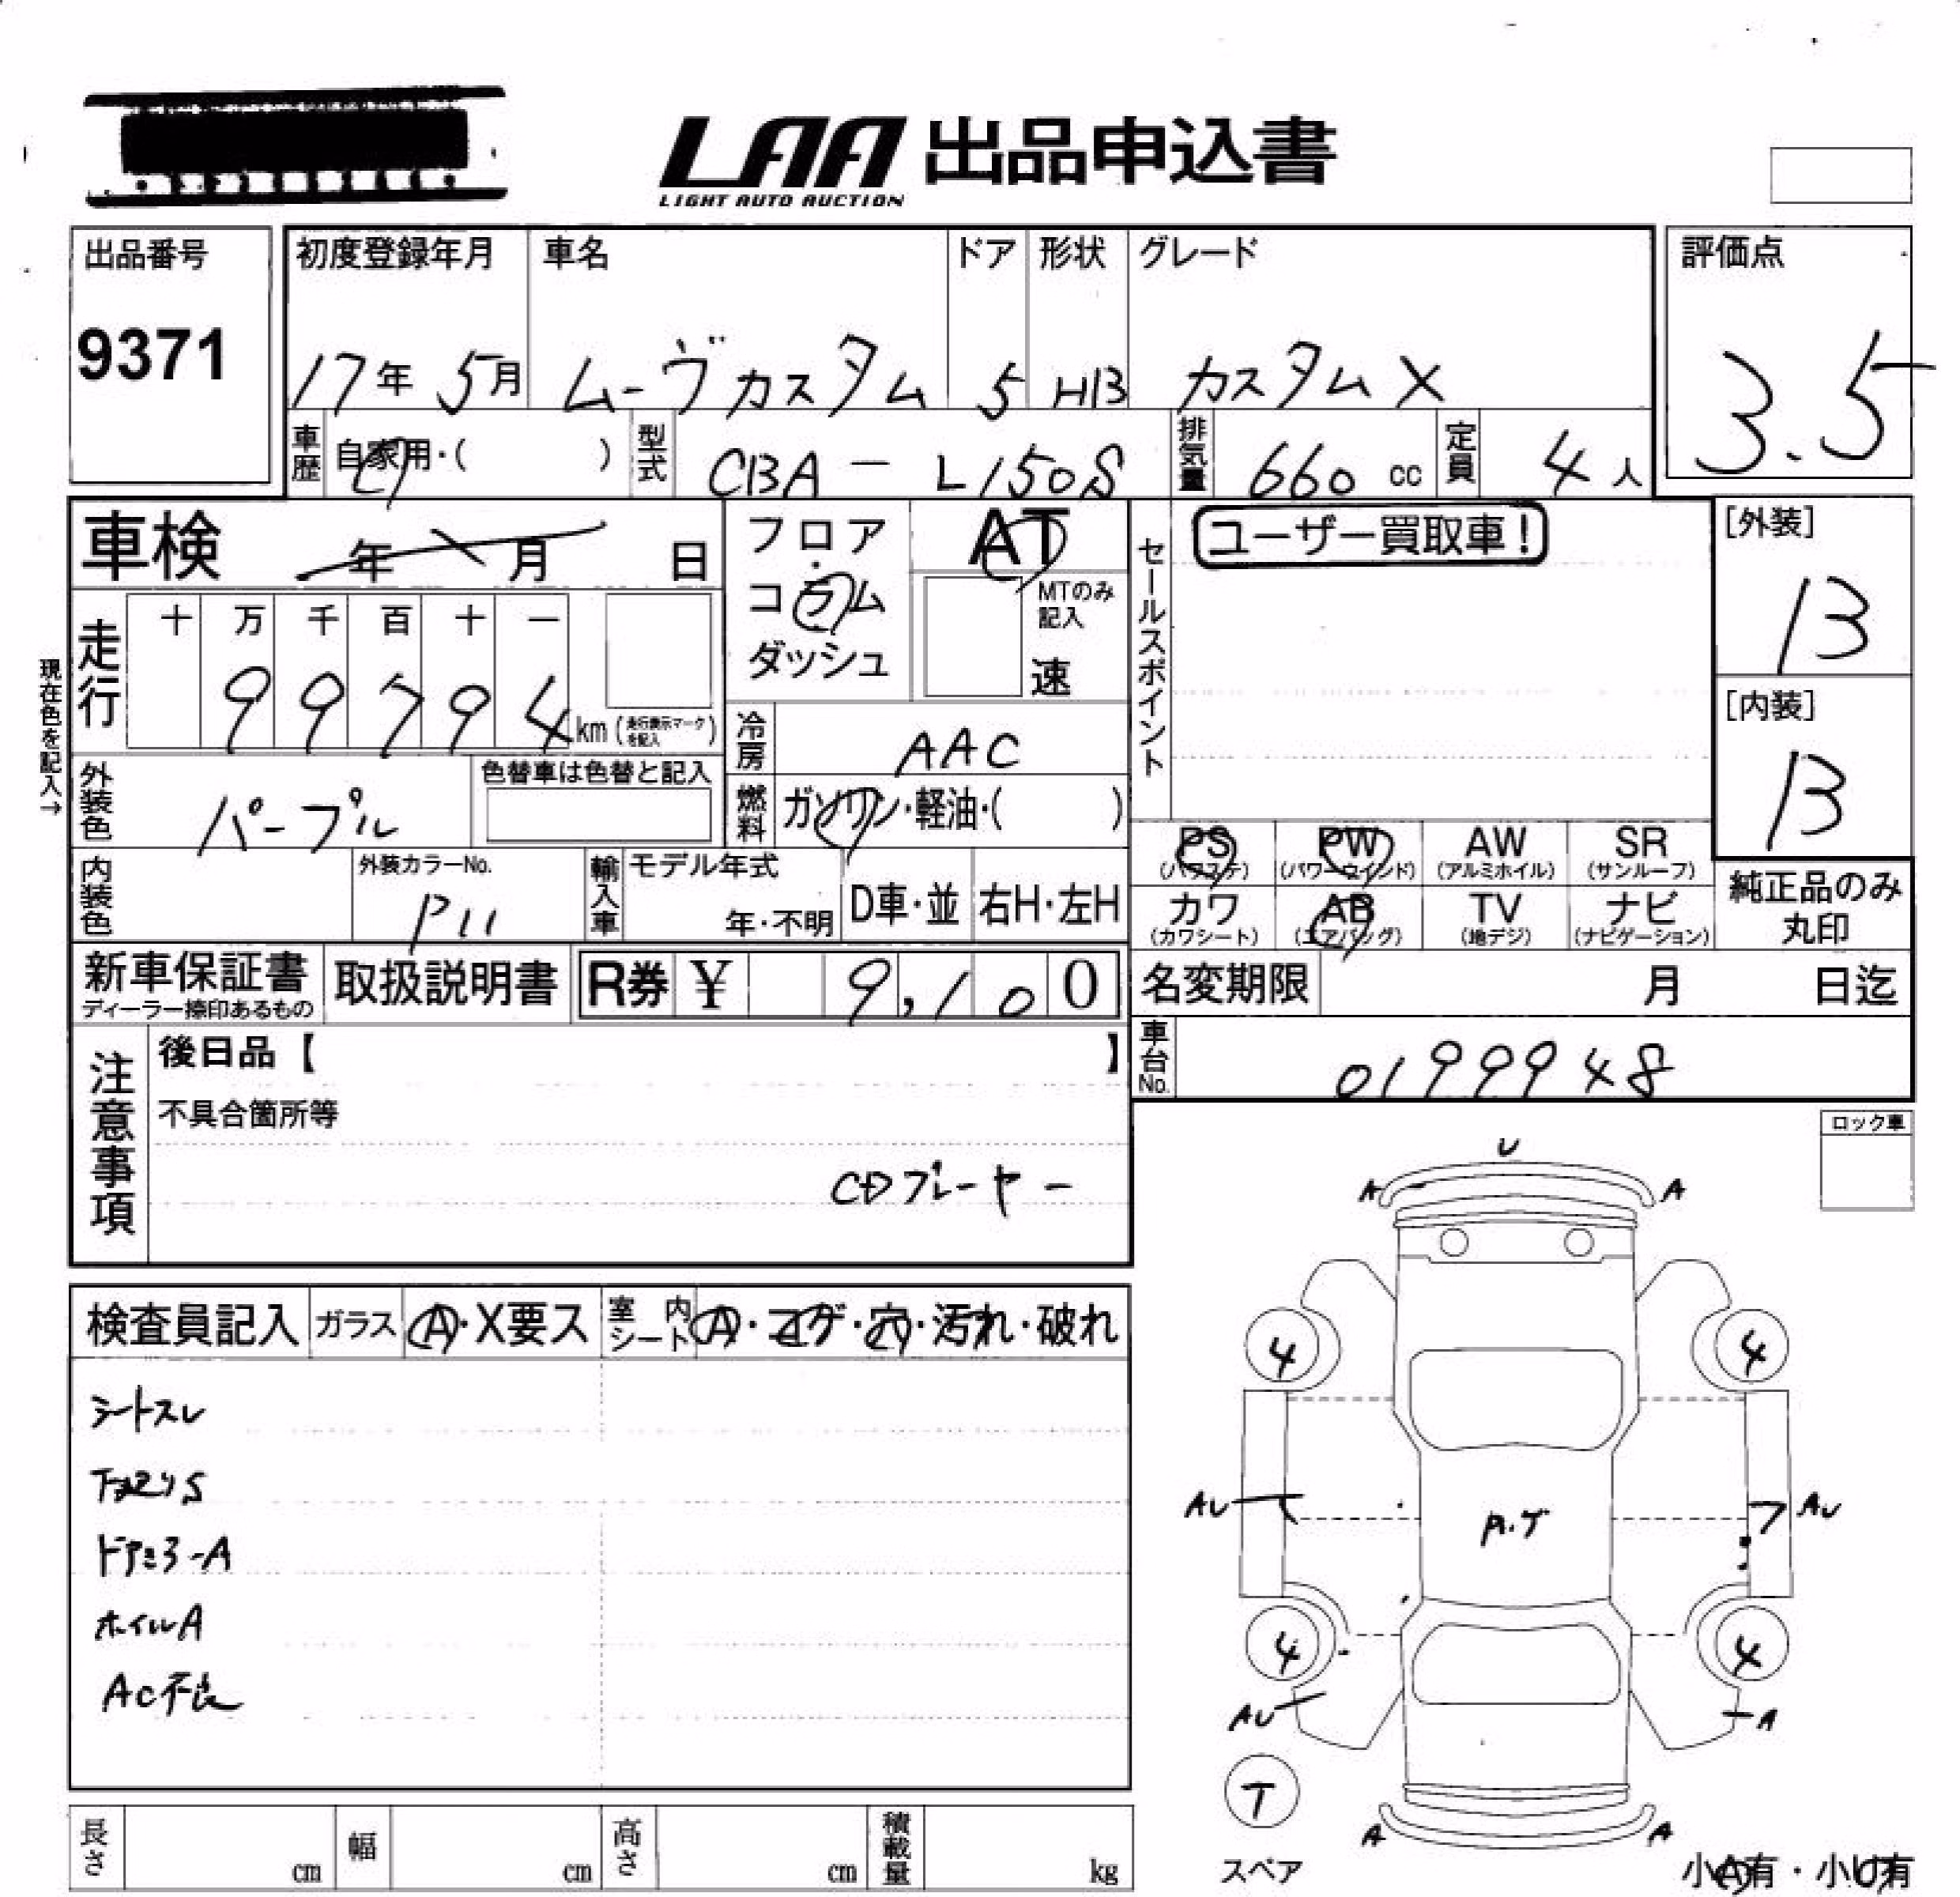 LAA 出品申込書
LIGHT AUTO AUCTION
出品番号
9371
初度登録年月 車名 ドア 形状 グレード
17年 5月 ムーヴカスタム 5 HB カスタムX
評価点
3.5
車歴 自家用・( ) 型式 CBA - L150S 排気量 660 cc 定員 4人
車検 年 月 日
フロア
コラム
ダッシュ
AT
MTのみ記入
速
セールスポイント
ユーザー買取車!
[外装]
B
[内装]
B
現在色を記入→
走行 十 万 千 百 十 一
99794 km (走行表示マークを記入)
冷房 AAC
外装色 パープル 色替車は色替と記入
燃料 ガソリン・軽油・( )
PS (パワステ) PW (パワーウインド) AW (アルミホイル) SR (サンルーフ)
カワ (カワシート) AB (エアバッグ) TV (地デジ) ナビ (ナビゲーション)
純正品のみ丸印
内装色 外装カラーNo. P11
輸入車 モデル年式 年・不明 D車・並 右H・左H
新車保証書 ディーラー捺印あるもの 取扱説明書 R券 ¥ 9,100
名変期限 月 日迄
車台No. 0199948
注意事項
後日品【 】
不具合箇所等
CDプレーヤー
ロック車
U
A A
検査員記入 ガラス A・X要ス 室内シート A・コゲ・穴・汚れ・破れ
シートスレ
下廻りS
ドアミラーA
ホイルA
AC不良
4 4
AU AU
P.T
4 4
AU A
T
スペア
A A
小A有・小U有
長さ cm 幅 cm 高さ cm 積載量 kg